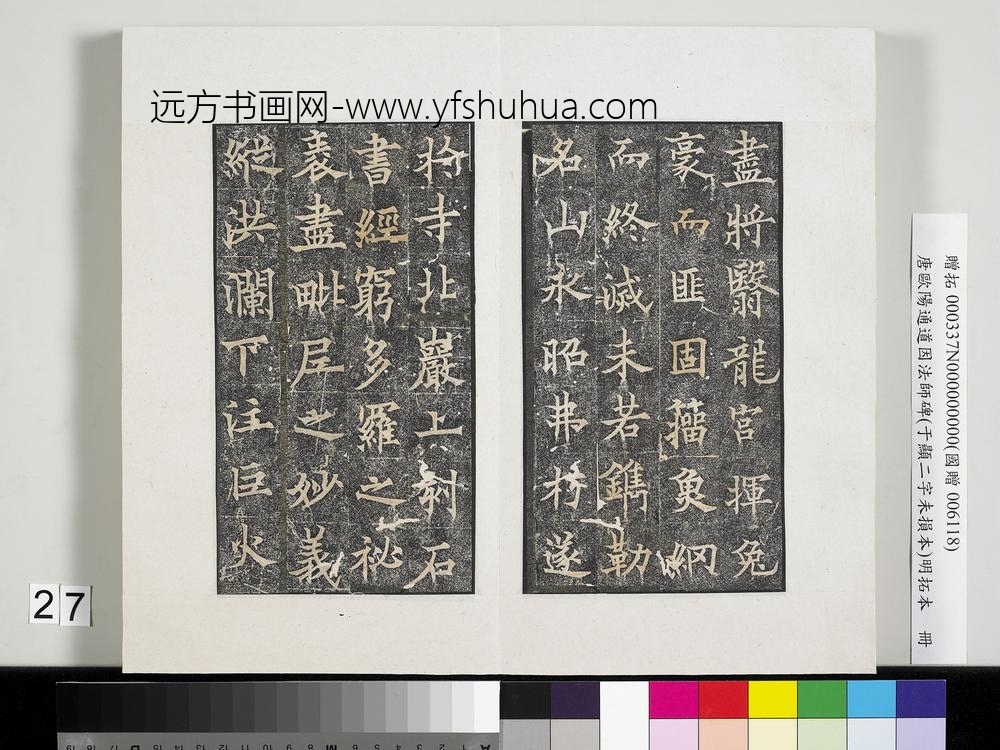 远方书画网-www.yfshuhua.com
盡將翳龍宮揮兔
豪而匪固籀魚網
而終滅未若鐫勒
名山永昭弗朽遂
於寺北巖上刻石
書經窮多羅之祕
袠盡毗尼之妙義
縱洪瀾下注巨火
贈拓 000337N000000000(國贈 006118)
唐歐陽通道因法師碑(于顯二字未損本)明拓本 冊
27